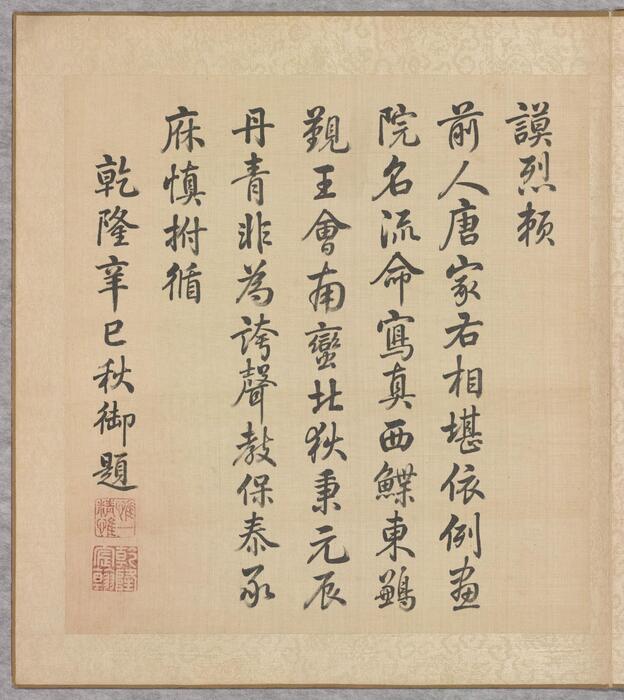 謨烈頼
前人唐家右相堪依例畫
院名流命寫真西鰈東鶼
覲王會南蠻北狄秉元辰
丹青非為誇聲教保泰承
庥慎拊循
乾隆辛巳秋御題
惟精惟一
乾隆宸翰